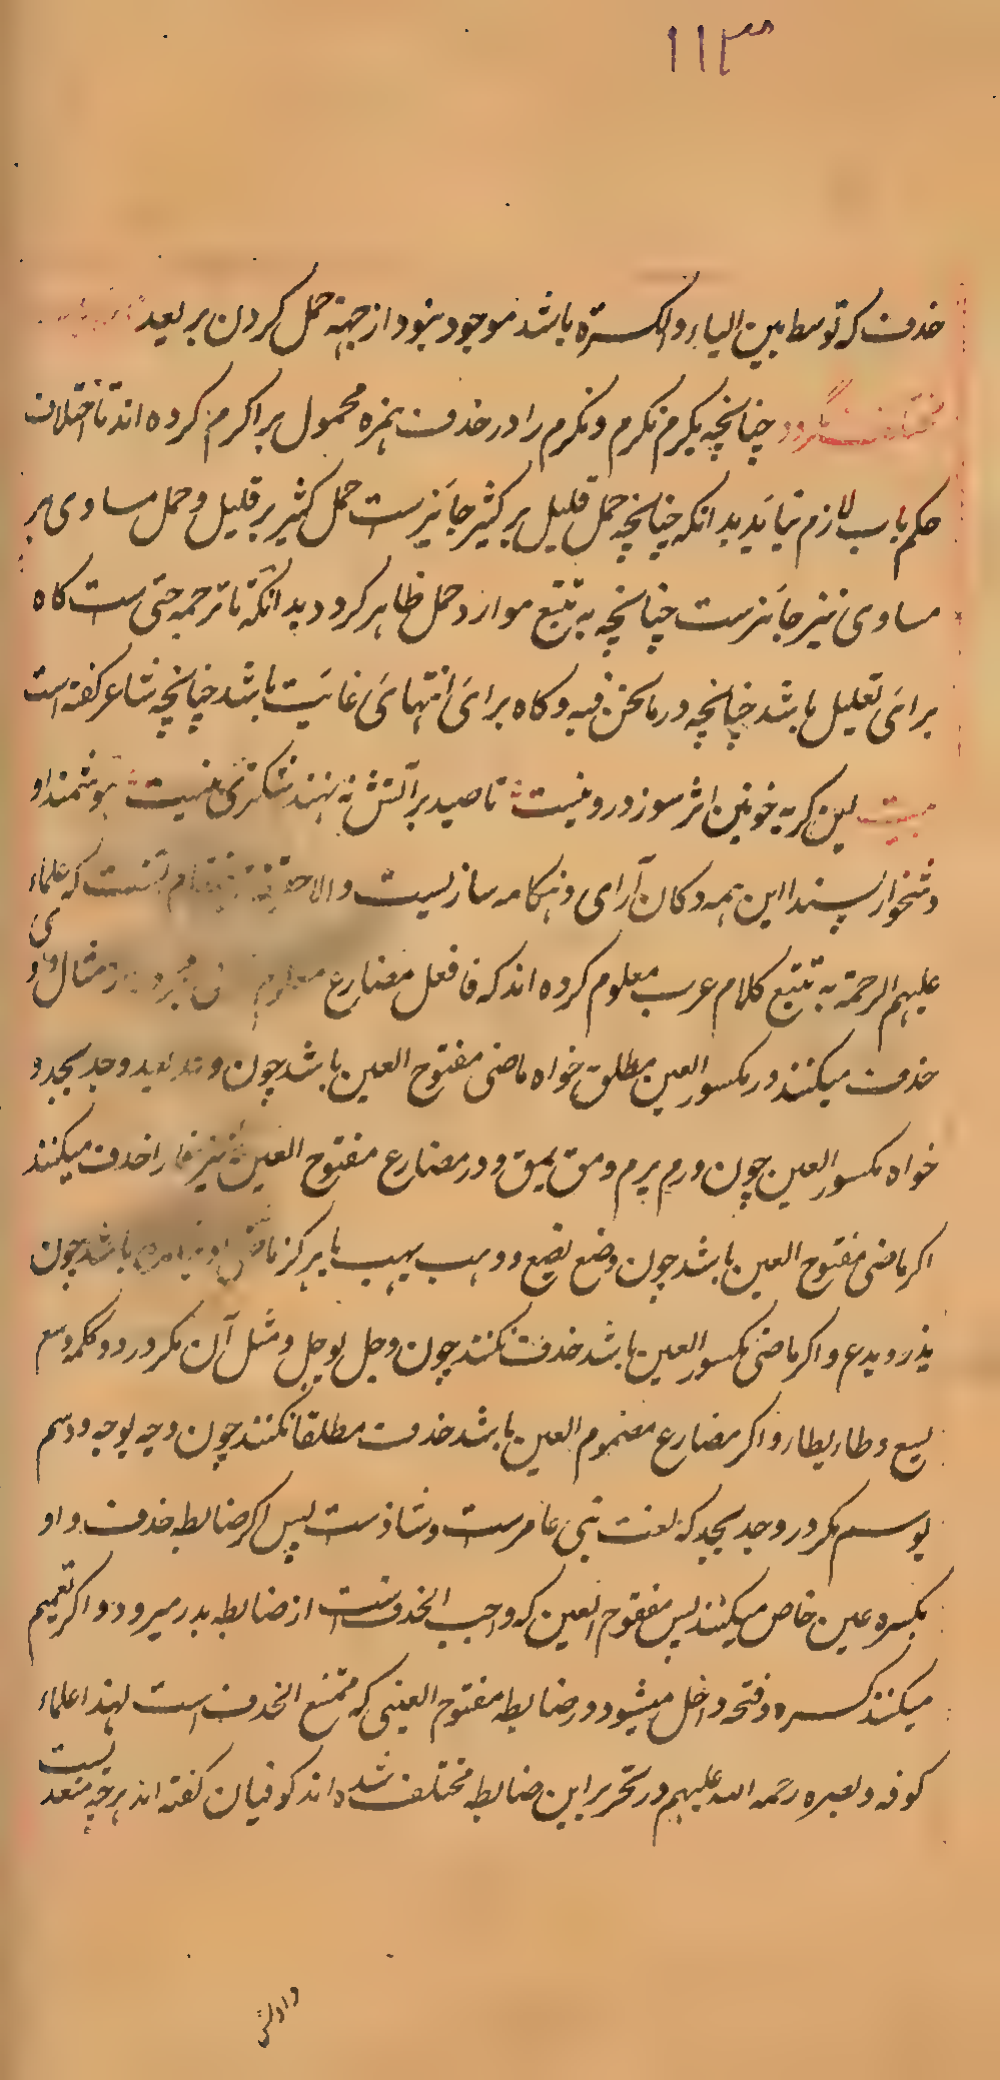 ۱۱۳
حذف که توسط بین الیاء والکسرة باشد موجود نبود از جهة حمل کردن بر یعد
چنانچه یکرم تکرم ونکرم را در حذف همزه محمول بر اکرم کرده اند تا اختلاف
حکم باب لازم نیاید بدانکه چنانچه حمل قلیل بر کثیر جائزست حمل کثیر بر قلیل وحمل مساوی بر
مساوی نیز جائزست چنانچه به تتبع موارد حمل ظاهر کردد بدانکه تا ترجمه حتی ست کاه
برای تعلیل باشد چنانچه در مانحن فیه وکاه برای انتهای غایت باشد چنانچه شاعر کفته است
بیت لبن کریه خونین اثر سوز درو نیست تا صید بر آتش نه نهند هوشمند او
دشخوار پسندا این همه دکان آرای وهنکامه سازیست والا که علماء
علیهم الرحمة به تتبع کلام عرب معلوم کرده اند که فا فعل مضارع معلوم مثال واوی
حذف میکنند در مکسور العین مطلق خواه ماضی مفتوح العین باشد چون وعد یعد و وجد یجد و
خواه مکسور العین چون ورم یرم ومق یمق و در مضارع مفتوح العین نیز فا را حذف میکنند
اکر ماضی مفتوح العین باشد چون وضع یضع و وهب یهب یا هرکز ماضی او نیامده باشد چون
یذر ویدع واکر ماضی مکسور العین باشد حذف نکنند چون وجل یوجل ومثل آن مکر در دو کلمه وسع
یسع و طاء یطاء واکر مضارع مضموم العین باشد حذف مطلقا نکنند چون وجه یوجه و وسم
یوسم مکر در وجد یجد که لغت بنی عامرست وشاذست پس اکر ضابطه حذف واو
بکسره عین خاص میکنند پس مفتوح العین که واجب الحذفست از ضابطه بدر میرود واکر تعمیم
میکنند کسره وفتحه داخل میشود در ضابطه مفتوح العینی که ممتنع الحذف است لهذا علماء
کوفه وبصره رحمة الله علیهم در تحریر این ضابطه مختلف شده اند کوفیان کفته اند هرچه متعدیست